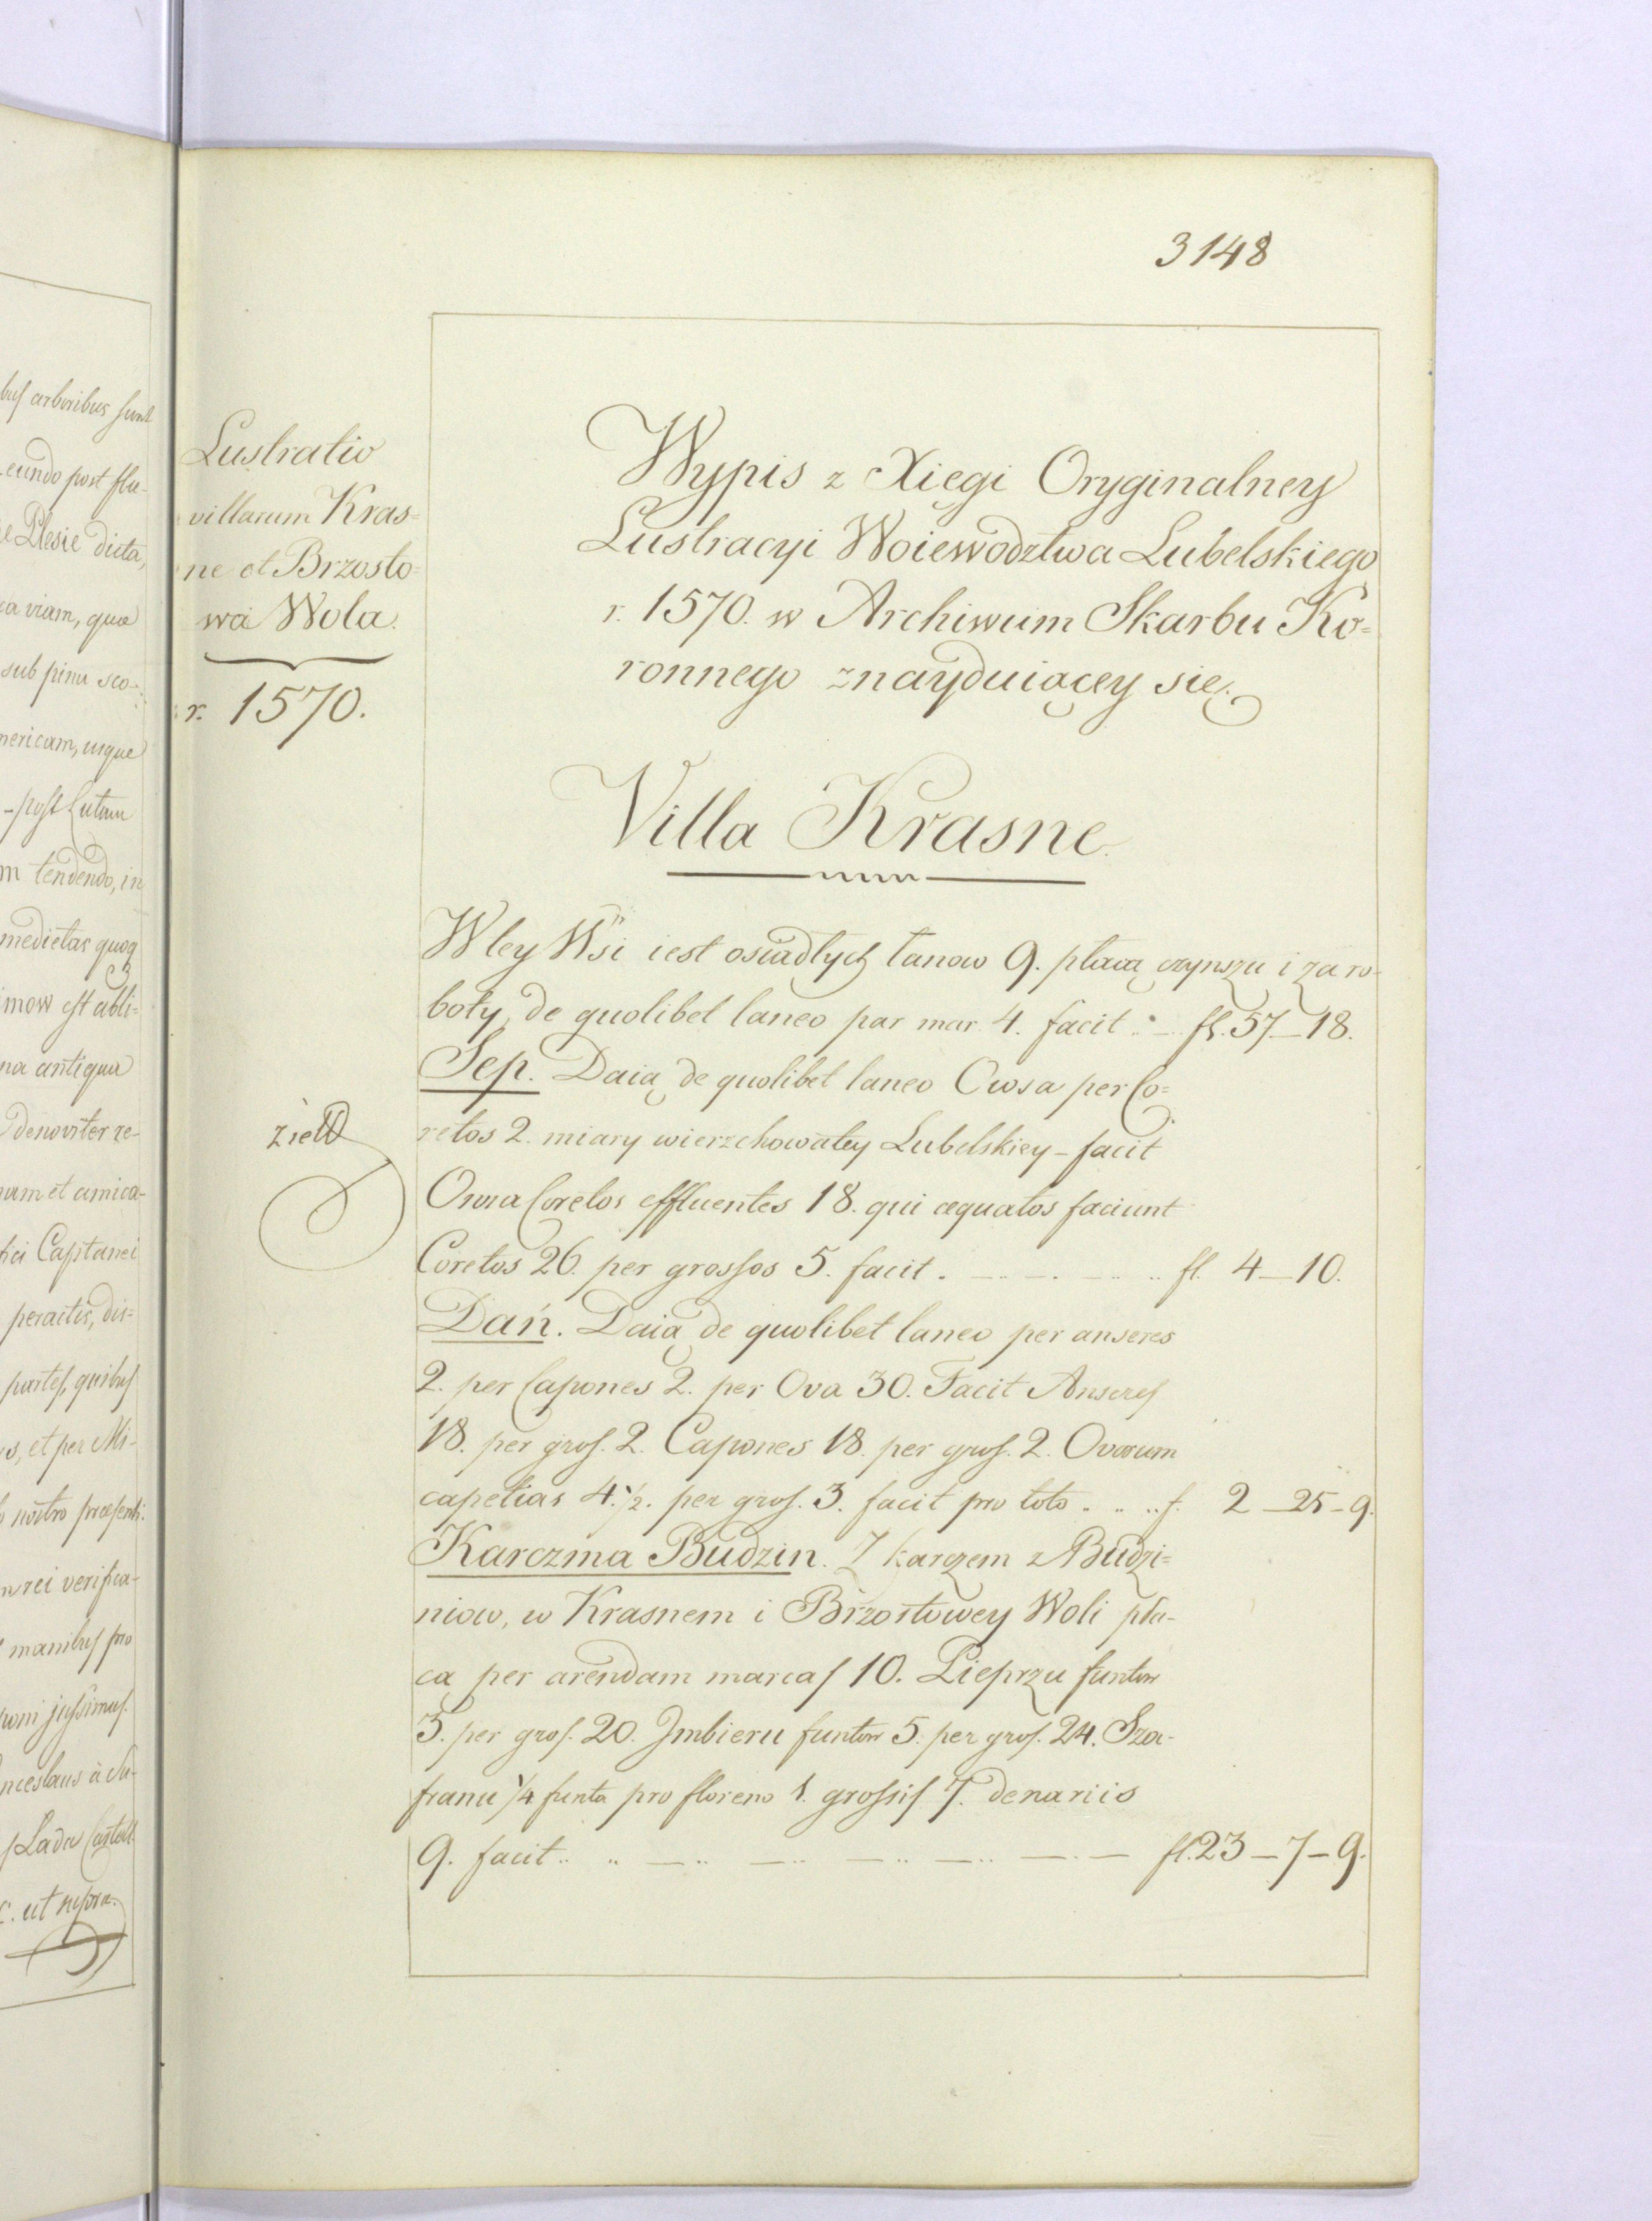 3148
Lustratio
villarum Kras=
ne et Brzosto=
wa Wola.
r. 1570.
Wypis z Xięgi Oryginalney
Lustracyi Woiewodztwa Lubelskiego
r. 1570. w Archiwum Skarbu Ko=
ronnego znayduiącey się.
Villa Krasne.
W tey Wsi iest osiadłych łanow 9. płacą czynszu i za ro-
boty, de quolibet laneo par mar. 4. facit fl. 57–18.
Sep. Daią de quolibet laneo Owsa per Co=
retos 2. miary wierzchowatey Lubelskiey – facit
Coretos effluentes 18. qui æquatos faciunt
Coretos 26. per grossos 5. facit . fl. 4–10.
Dań. Daią de quolibet laneo per anseres
2. per Capones 2. per Ova 30. Facit Anseres
18. per gros. 2. Capones 18. per gros. 2. Ovorum
capetias 4.½. per gros. 3. facit pro toto . . . . f. 2–25–9.
Karczma Budzin. Z karczem z Budzi=
niow, w Krasnem i Brzostowey Woli pła-
cą per arendam marcas 10. Pieprzu funtow
3. per gros. 20. Imbieru funtow 5. per gros. 24. Sza-
franu ¼ funta pro floreno 1. grossis 7. denariis
9. facit fl. 23–7–9.
bus arboribus sunt
eundo post flu-
Plesie dicta,
viam, quæ
sub pinu
usque
post Lutam
tendendo, in
medietas quoq
est
antiqua
denoviter re-
et amica-
Capitanei
peractis, dis=
partes, quibus
et per Mi-
nostro præsenti.
rei verifica-
manibus pro
jussimus.
Lada Castell.
ut supra.